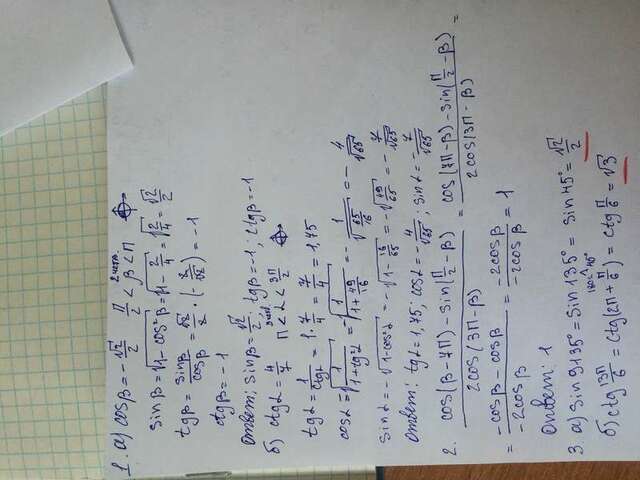 1. а) cosβ = -√2/2   π/2 < β < π   2 четв.
sinβ = √(1-cos²β) = √(1-2/4) = √(2/4) = √2/2
tgβ = sinβ/cosβ = √2/2 · (-2/√2) = -1
ctgβ = -1
Ответ: sinβ = √2/2; tgβ = -1; ctgβ = -1
б) ctgα = 4/7   π < α < 3π/2
tgα = 1/ctgα = 1 · 7/4 = 7/4 = 1,75
cosα = √(1/(1+tg²α)) = -√(1/(1+49/16)) = -√(1/(65/16)) = -4/√65
sinα = -√(1-cos²α) = -√(1-16/65) = √(49/65) = -7/√65
Ответ: tgα = 1,75; cosα = -4/√65; sinα = -7/√65
2. (cos(β-7π) - sin(π/2-β))/(2cos(3π-β)) = (cos(7π-β) - sin(π/2-β))/(2cos(3π-β)) =
= (-cosβ - cosβ)/(-2cosβ) = (-2cosβ)/(-2cosβ) = 1
Ответ: 1
3. а) sin 9135° = sin 135° = sin 45° = √2/2
б) ctg 13π/6 = ctg(2π + π/6) = ctg π/6 = √3